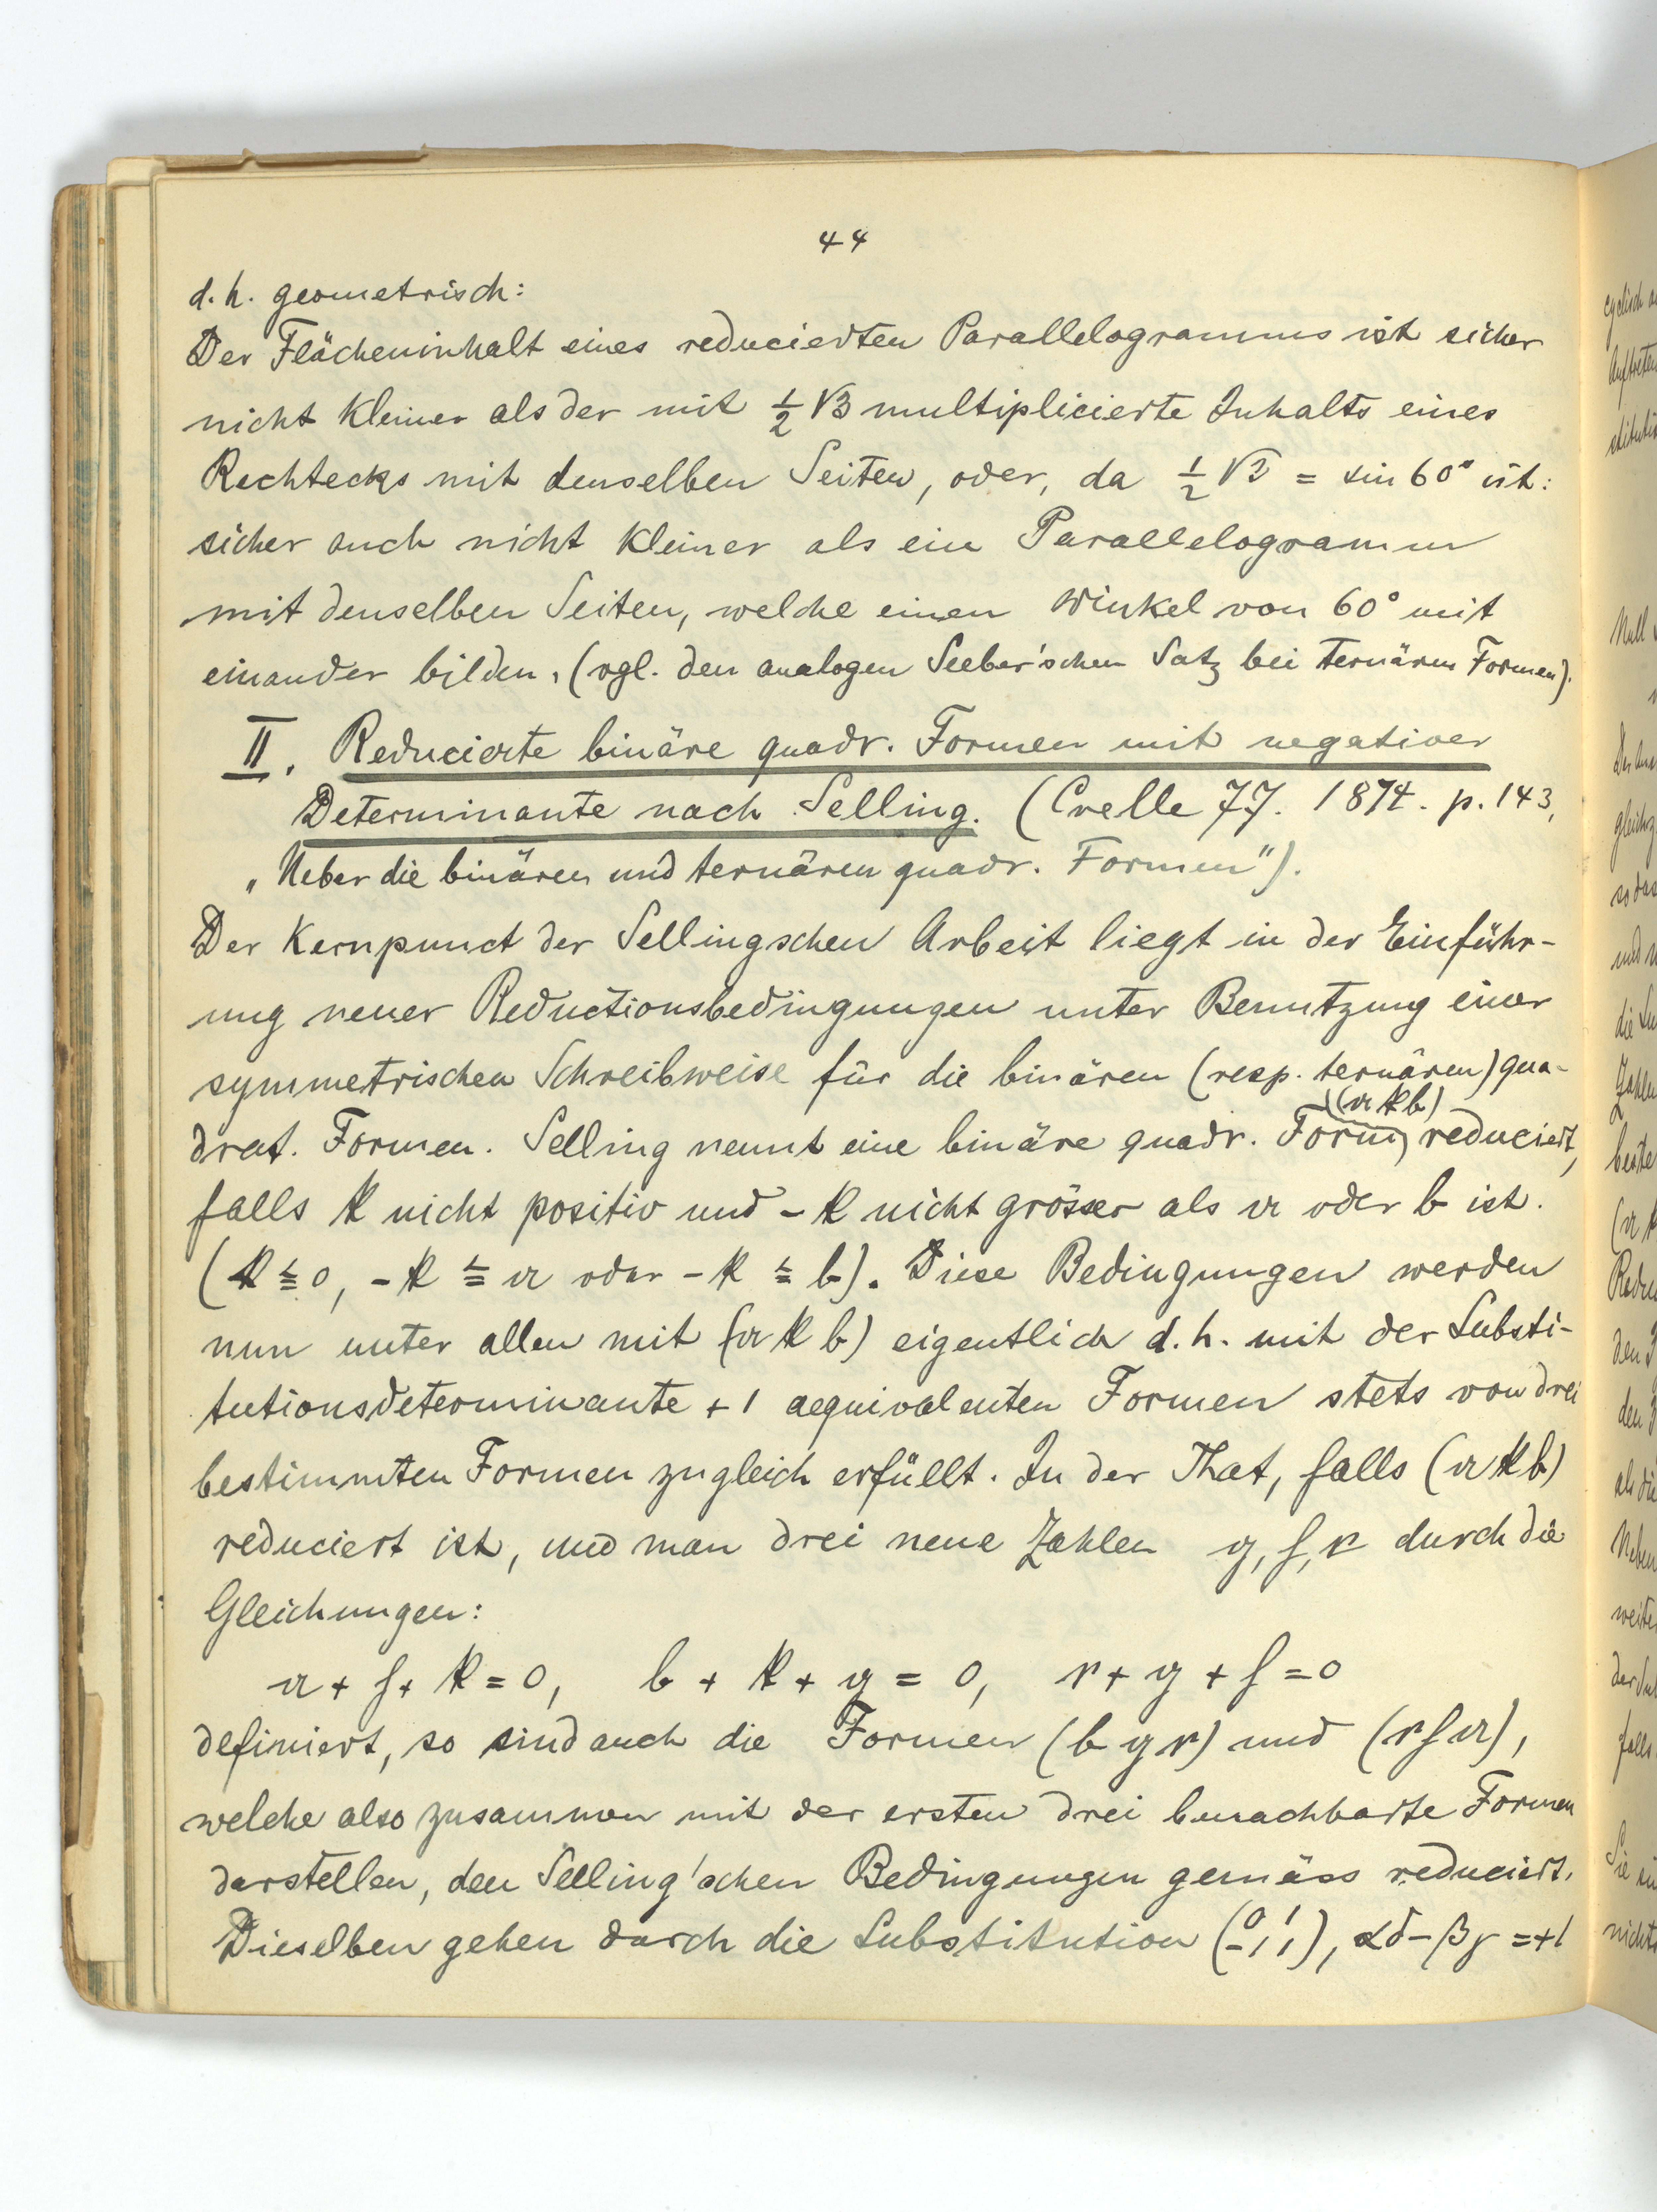 44
d. h. geometrisch:
Der Flächeninhalt eines reducierten Parallelogramms ist sicher
nicht kleiner als der mit ½ √3 multiplicierte Inhalts eines
Rechtecks mit denselben Seiten, oder, da ½ √3 = sin 60° ist:
sicher auch nicht kleiner als ein Parallelogramm
mit denselben Seiten, welche einen Winkel von 60° mit
einander bilden, (vgl. den analogen Seeber'schen Satz bei ternären Formen).
II. Reducierte binäre quadr. Formen mit negativer
Determinante nach Selling. (Crelle 77. 1874. p. 143,
„Ueber die binären und ternären quadr. Formen").
Der Kernpunct der Sellingschen Arbeit liegt in der Einführ-
ung neuer Reductionsbedingungen unter Benutzung einer
symmetrischen Schreibweise für die binären (resp. ternären) qua-
(a k b)
drat. Formen. Selling nennt eine binäre quadr. Form reduciert,
falls k nicht positiv und - k nicht grösser als a oder b ist.
(k ≦ 0, - k ≦ a oder - k ≦ b). Diese Bedingungen werden
nun unter allen mit (a k b) eigentlich d. h. mit der Substi-
tutionsdeterminante + 1 aequivalenten Formen stets von drei
bestimmten Formen zugleich erfüllt. In der That, falls (a k b)
reduciert ist, und man drei neue Zahlen g, h, c durch die
Gleichungen:
a + h + k = 0, b + k + g = 0, c + g + h = 0
definiert, so sind auch die Formen (b g c) und (c h a),
welche also zusammen mit der ersten drei benachbarte Formen
darstellen, den Selling'schen Bedingungen gemäss reduciert.
Dieselben gehen durch die Substitution (0 1 -1 1), αδ-βγ =+1